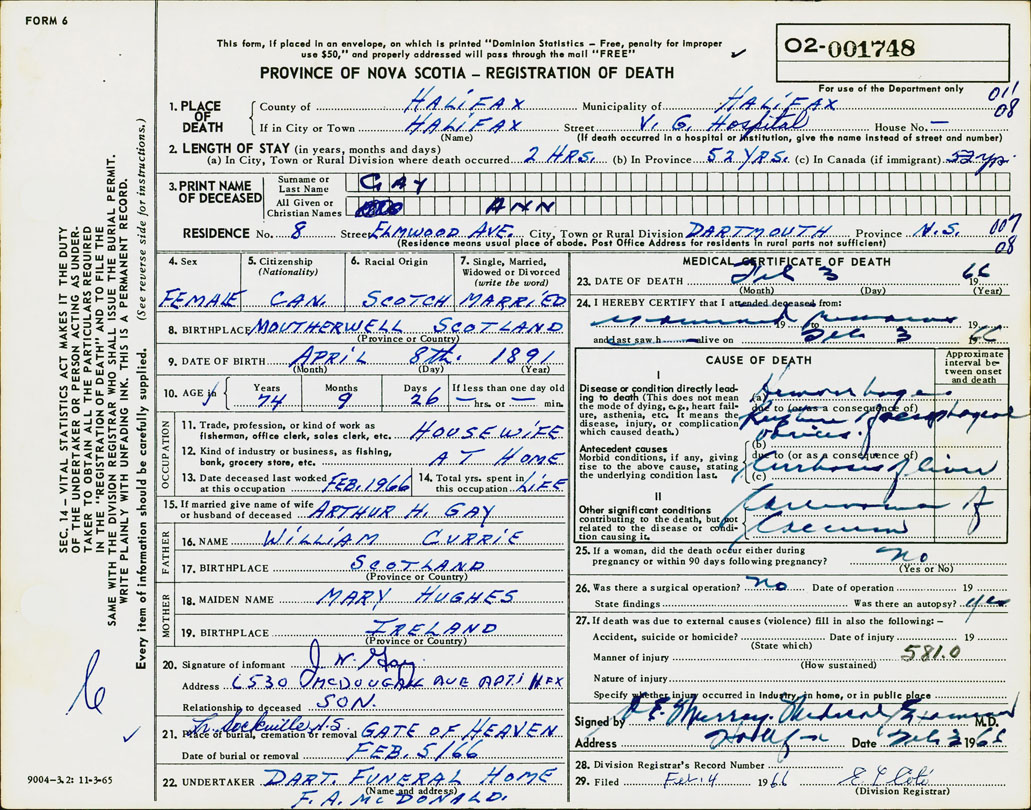 FORM 6
This form, if placed in an envelope, on which is printed "Dominion Statistics – Free, penalty for improper
use $50," and properly addressed will pass through the mail "FREE"
PROVINCE OF NOVA SCOTIA – REGISTRATION OF DEATH
02-001748
For use of the Department only
011
08
1. PLACE OF DEATH
County of HALIFAX Municipality of HALIFAX
If in City or Town HALIFAX Street V. G. Hospital House No. —
(Name) (If death occurred in a hospital or institution, give the name instead of street and number)
2. LENGTH OF STAY (in years, months and days)
(a) In City, Town or Rural Division where death occurred 2 HRS. (b) In Province 52 YRS. (c) In Canada (if immigrant) 52 yrs.
3. PRINT NAME OF DECEASED
Surname or Last Name GAY
All Given or Christian Names ANN
RESIDENCE No. 8 Street ELMWOOD AVE. City, Town or Rural Division DARTMOUTH Province N.S.
(Residence means usual place of abode. Post Office Address for residents in rural parts not sufficient)
007
08
4. Sex FEMALE
5. Citizenship (Nationality) CAN.
6. Racial Origin SCOTCH
7. Single, Married, Widowed or Divorced (write the word) MARRIED
8. BIRTHPLACE MOUTHERWELL SCOTLAND
(Province or Country)
9. DATE OF BIRTH APRIL 8TH. 1891
(Month) (Day) (Year)
10. AGE if Years 74 Months 9 Days 26 If less than one day old — hrs. or — min.
OCCUPATION
11. Trade, profession, or kind of work as
fisherman, office clerk, sales clerk, etc. HOUSEWIFE
12. Kind of industry or business, as fishing,
bank, grocery store, etc. AT HOME
13. Date deceased last worked at this occupation FEB. 1966
14. Total yrs. spent in this occupation LIFE
15. If married give name of wife or husband of deceased ARTHUR H. GAY
FATHER
16. NAME WILLIAM CURRIE
17. BIRTHPLACE SCOTLAND
(Province or Country)
MOTHER
18. MAIDEN NAME MARY HUGHES
19. BIRTHPLACE IRELAND
(Province or Country)
20. Signature of informant J. W. Gay
Address 6530 McDOUGALL AVE APT. 1 HFX
Relationship to deceased SON.
21. Place of burial, cremation or removal GATE OF HEAVEN
Date of burial or removal FEB. 5/66
22. UNDERTAKER DART. FUNERAL HOME
(Name and address)
F. A. McDONALD.
MEDICAL CERTIFICATE OF DEATH
23. DATE OF DEATH Feb 3 1966
(Month) (Day) (Year)
24. I HEREBY CERTIFY that I attended deceased from:
19 to 19
and last saw h alive on Feb 3 1966
CAUSE OF DEATH
Approximate interval between onset and death
I
Disease or condition directly leading to death (This does not mean the mode of dying, e.g., heart failure, asthenia, etc. It means the disease, injury, or complication which caused death.)
(a) Hemorrhage
due to (or as a consequence of)
Rupture of esophageal
varices.
Antecedent causes
Morbid conditions, if any, giving rise to the above cause, stating the underlying condition last.
(b)
due to (or as a consequence of)
Cirrhosis of liver
(c)
II
Other significant conditions contributing to the death, but not related to the disease or condition causing it.
Carcinoma of
Caecum
25. If a woman, did the death occur either during
pregnancy or within 90 days following pregnancy? no
(Yes or No)
26. Was there a surgical operation? no Date of operation 19
State findings Was there an autopsy? yes
27. If death was due to external causes (violence) fill in also the following: –
Accident, suicide or homicide? Date of injury 19
(State which)
Manner of injury 581.0
(How sustained)
Nature of injury
Specify whether injury occurred in industry, in home, or in public place
Signed by Murray. Medical Examiner M.D.
Address Halifax Date Feb 3 1966
28. Division Registrar's Record Number
29. Filed Feb. 4 1966
(Division Registrar)
SEC. 14 – VITAL STATISTICS ACT MAKES IT THE DUTY
OF THE UNDERTAKER OR PERSON ACTING AS UNDER-
TAKER TO OBTAIN ALL THE PARTICULARS REQUIRED
IN THE "REGISTRATION OF DEATH" AND TO FILE THE
SAME WITH THE DIVISION REGISTRAR WHO SHALL ISSUE THE BURIAL PERMIT.
WRITE PLAINLY WITH UNFADING INK. THIS IS A PERMANENT RECORD.
Every item of information should be carefully supplied. (See reverse side for instructions.)
9004–3.2: 11-3-65